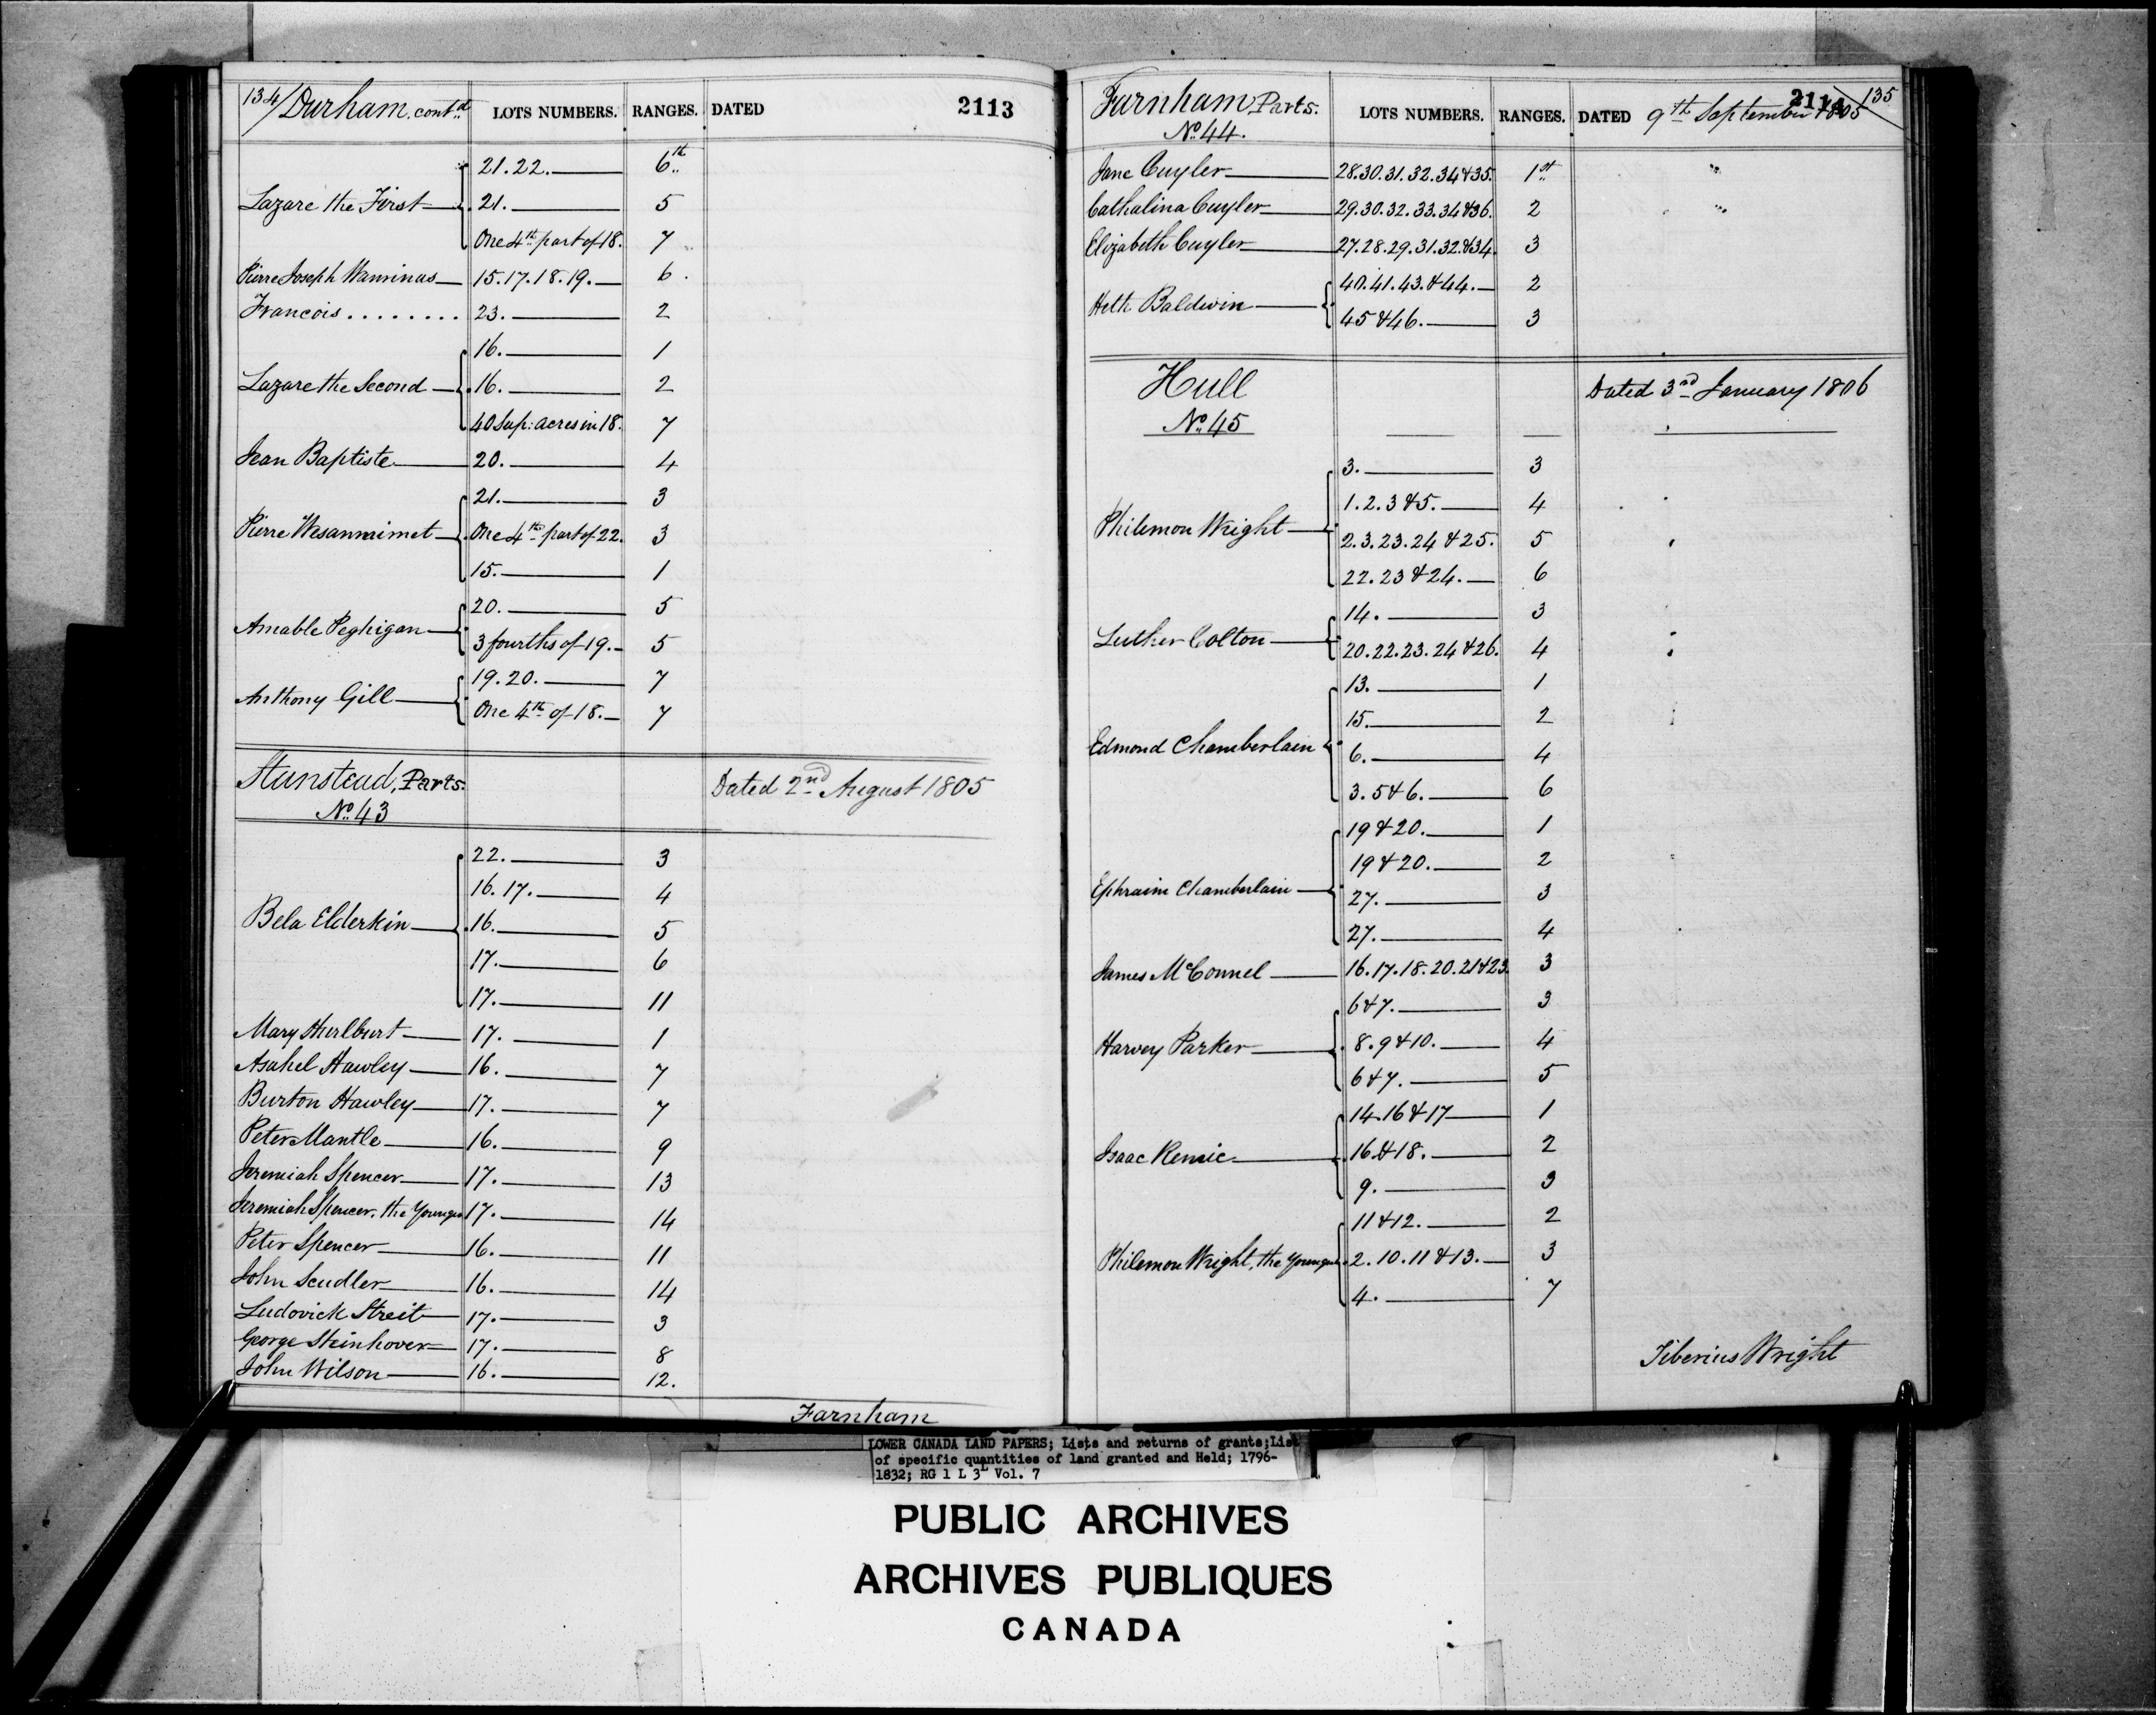 134/ Durham, cont.d LOTS NUMBERS. RANGES. DATED 2113
21.22. 6th
Lazare the First 21. 5
One 4th part of 18. 7
Pierre Joseph Wawinas 15.17.18.19. 6.
Francois ........ 23. 2
16. 1
Lazare the Second 16. 2
40 Sup: acres in 18. 7
Jean Baptiste 20. 4
21. 3
Pierre Wesanmimet One 4th part of 22. 3
15. 1
20. 5
Amable Peghigan
3 fourths of 19. 5
19.20. 7
Anthony Gill
One 4th of 18. 7
Stanstead, Parts. Dated 2nd August 1805
No. 43
22. 3
16.17. 4
Bela Elderkin 16. 5
17. 6
17. 11
Mary Hurlburt 17. 1
Asahel Hawley 16. 7
Burton Hawley 17. 7
Peter Mantle 16. 9
Jeremiah Spencer 17. 13
Jeremiah Spencer, the Younger 17. 14
Peter Spencer 16. 11
John Scudler 16. 14
Ludovick Streit 17. 3
George Steinhover 17. 8
John Wilson 16. 12.
Farnham
Farnham Parts. LOTS NUMBERS. RANGES. DATED 9th September 1805 2114 135
No. 44.
Jane Cuyler 28.30.31.32.34&35. 1st "
Cathalina Cuyler 29.30.32.33.34&36. 2 "
Elizabeth Cuyler 27.28.29.31.32.&34. 3
40.41.43.&44. 2
Heth Baldwin
45&46. 3
Hull Dated 3rd January 1806
No. 45
3. 3
1.2.3&5. 4
Philemon Wright
2.3.23.24&25. 5
22.23&24. 6
14. 3
Luther Colton
20.22.23.24&26. 4
13. 1
15. 2
Edmond Chamberlain
6. 4
3.5&6. 6
19&20. 1
19&20. 2
Ephraim Chamberlain
27. 3
27. 4
James McConnel 16.17.18.20.21&23. 3
6&7. 3
Harvey Parker 8.9&10. 4
6&7. 5
14.16&17 1
Isaac Remic 16.&18. 2
9. 3
11&12. 2
Philemon Wright, the Younger 2.10.11&13. 3
4. 7
Tiberius Wright
LOWER CANADA LAND PAPERS; Lists and returns of grants;List
of specific quantities of land granted and Held; 1796-
1832; RG 1 L 3L Vol. 7
PUBLIC ARCHIVES
ARCHIVES PUBLIQUES
CANADA